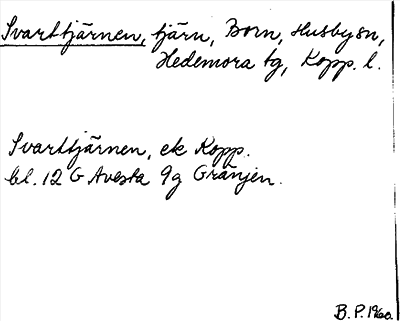 Svarttjärnen, tjärn, Born, Husby sn,
Hedemora tg, Kopp. l.
Svarttjärnen, ek Kopp.
bl. 12 G Avesta 9g Gränjen.
B. P. 1960.